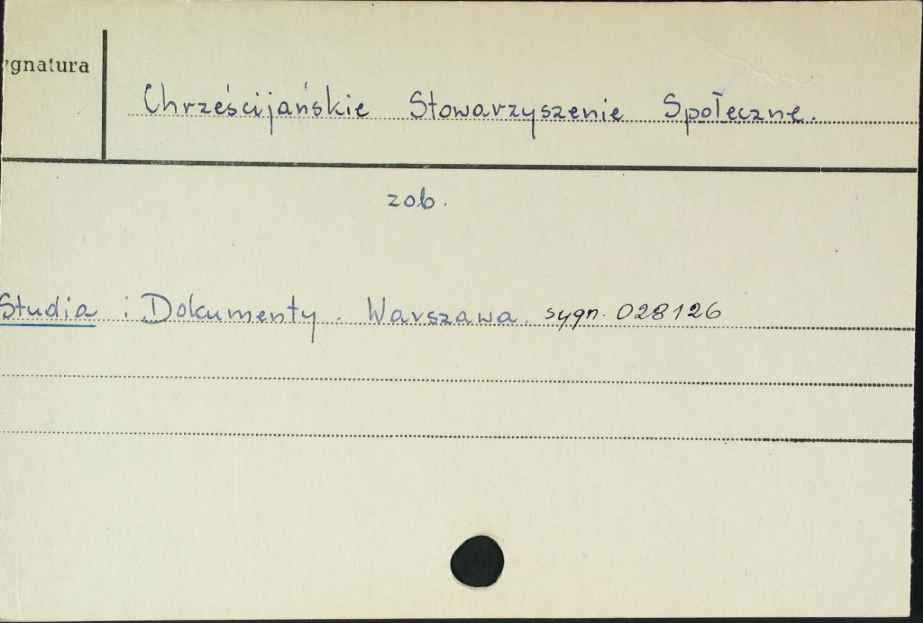 ygnatura
Chrześcijańskie Stowarzyszenie Społeczne.
zob.
Studia i Dokumenty. Warszawa. sygn. 028126